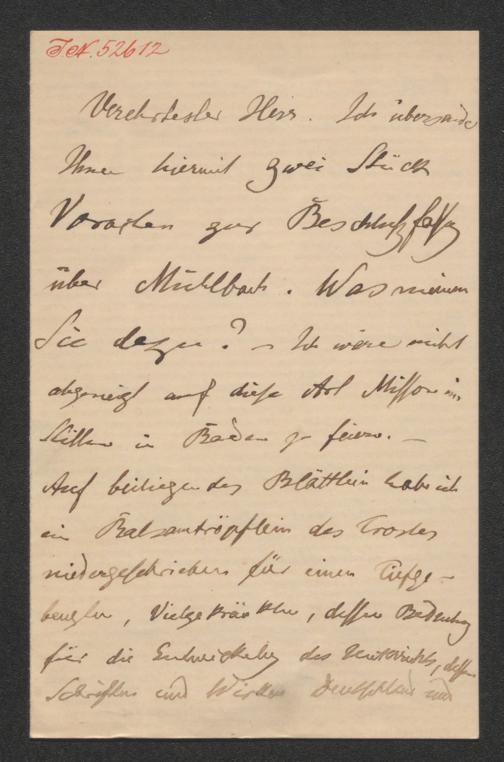 J.N. 52612
Verehrtester Herr. Ich übersende
Ihnen hiermit zwei Stück
Voracten zur Beschlußfassung
über Mühlbach. Was meinen
Sie dazu? – Ich wäre nicht
abgeneigt auf diese Art Mission im
Stillen in Baden zu feiern. –
Auf beiliegendes Blättlein habe ich
ein Balsamtröpflein des Trostes
niedergeschrieben für einen Tiefge-
beugten, Vielgekränkten, dessen Bedeutung
für die Entwickelung des Unterrichts, dessen
Schriften und Wirken Deutschland und